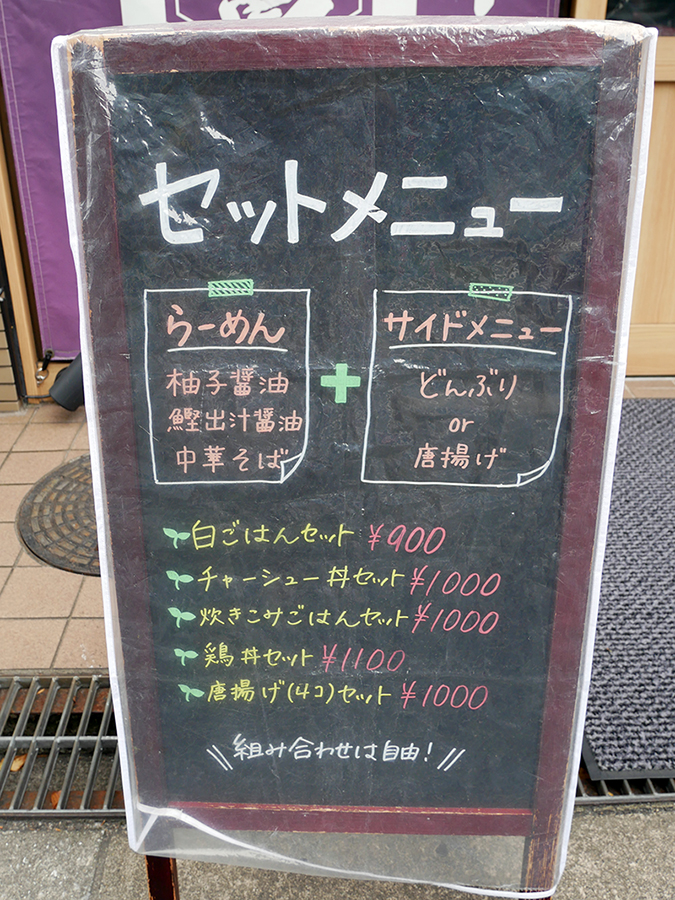 セットメニュー
らーめん
柚子醤油
鰹出汁醤油
中華そば
+
サイドメニュー
どんぶり
or
唐揚げ
白ごはんセット ¥900
チャーシュー丼セット ¥1000
炊きこみごはんセット ¥1000
鶏丼セット ¥1100
唐揚げ(4コ)セット ¥1000
\\組み合わせは自由!//